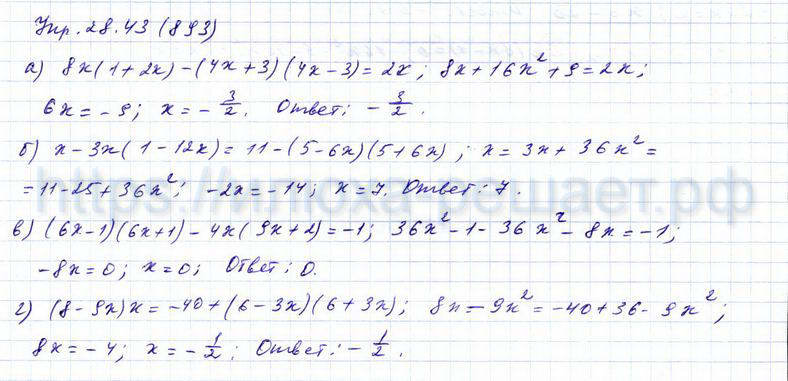 Упр. 28.43 (893)
а) 8x(1+2x)-(4x+3)(4x-3)=2x; 8x+16x²+9=2x;
6x=-9; x=-3/2. Ответ: -3/2.
б) x-3x(1-12x)=11-(5-6x)(5+6x); x=3x+36x²=
=11-25+36x²; -2x=-14; x=7. Ответ: 7.
в) (6x-1)(6x+1)-4x(9x+2)=-1; 36x²-1-36x²-8x=-1;
-8x=0; x=0; Ответ: 0.
г) (8-9x)x=-40+(6-3x)(6+3x); 8x-9x²=-40+36-9x²;
8x=-4; x=-1/2; Ответ: -1/2.